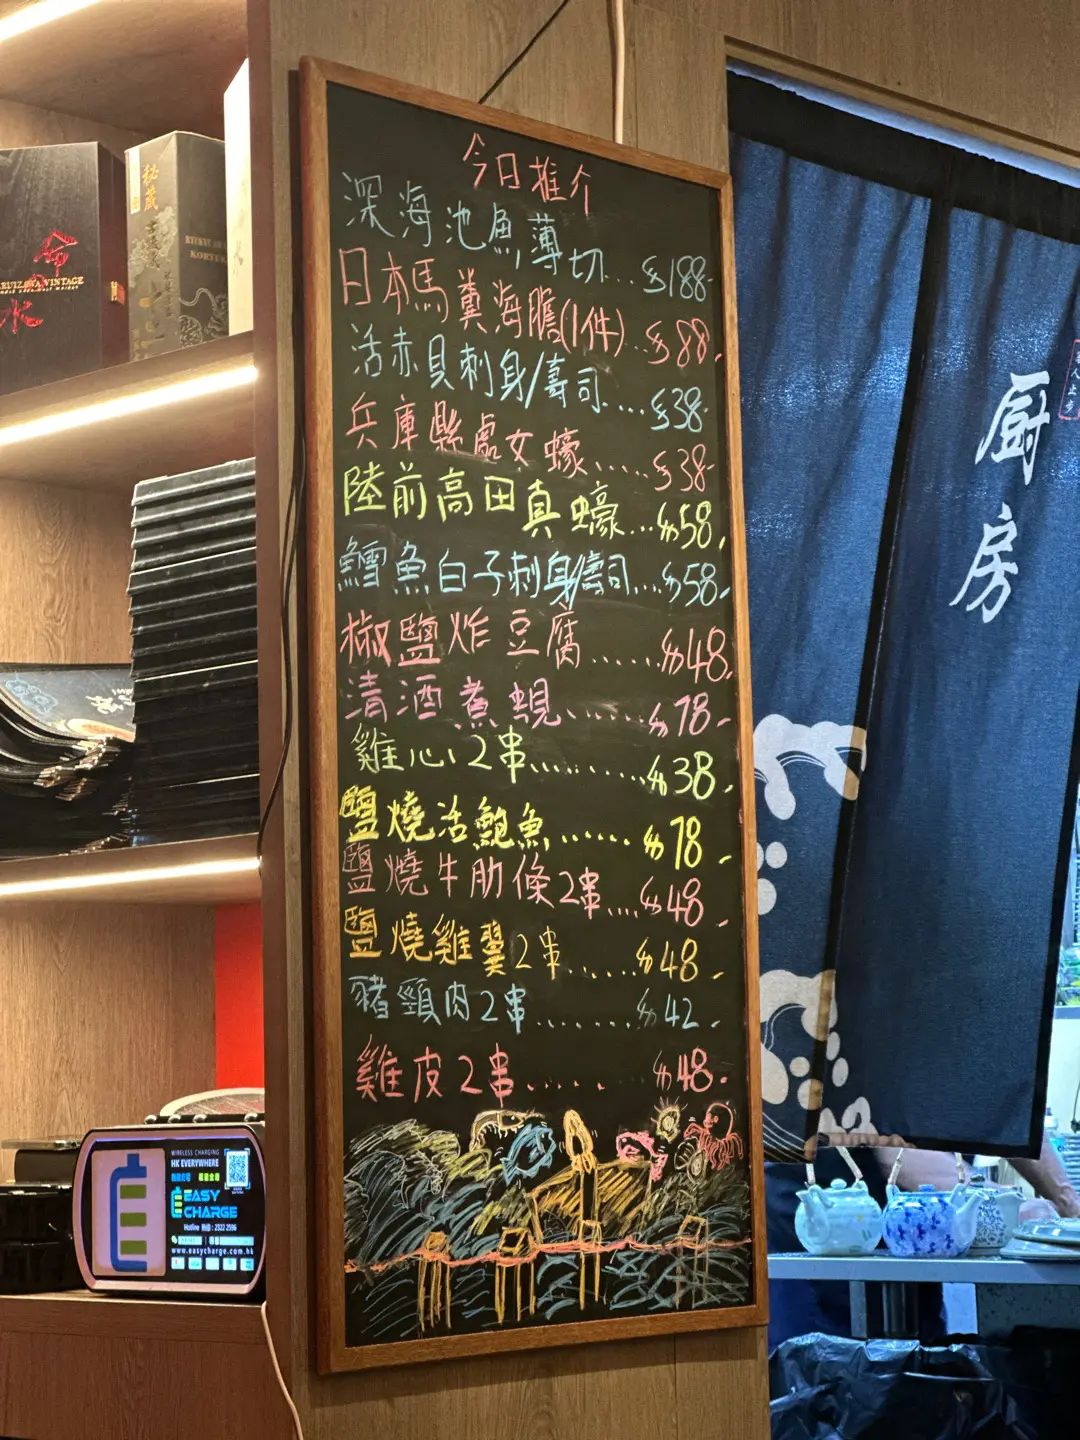 今日推介
深海池魚薄切...$188-
日本馬糞海膽(1件)..$88.
活赤貝刺身/壽司....$38-
兵庫縣處女蠔.....$38-
陸前高田真蠔...$58.
鱈魚白子刺身/壽司....$58.
椒鹽炸豆腐......$48.
清酒煮蜆......$78-
雞心2串..........$38.
鹽燒活鮑魚......$78-
鹽燒牛肋條2串....$48-
鹽燒雞翼2串......$48-
豬頸肉2串.......$42.
雞皮2串......$48.
厨房
命の水
KARUIZAWA VINTAGE
秘蔵
WIRELESS CHARGING
HK EVERYWHERE
EASY
CHARGE
Hotline 熱線: 2322 2596
www.easycharge.com.hk